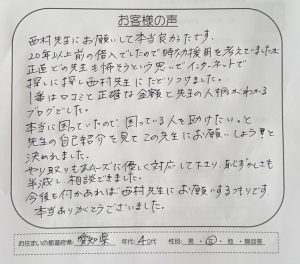 お客様の声
西村先生にお願いして本当良かったです。
20年以上前の借入でしたので時効援用を考えていましたが
正直どの先生も怖そうという思いでインターネットで
探しに探し西村先生にたどりつきました。
1番は口コミと正確な金額と先生の人柄がわかる
ブログでした。
本当に困っていたので、困っている人を助けたい。と
先生の自己紹介を見てこの先生にお願いしよう!と
決めれました。
やり取りもスムーズに優しく対応して下さり、恥ずかしさも
半減し、相談できました。
今後も何かあれば西村先生にお願いするつもりです
本当ありがとうございました。
お住まいの都道府県: 愛知県 年代: 40代 性別: 男・女・他・無回答